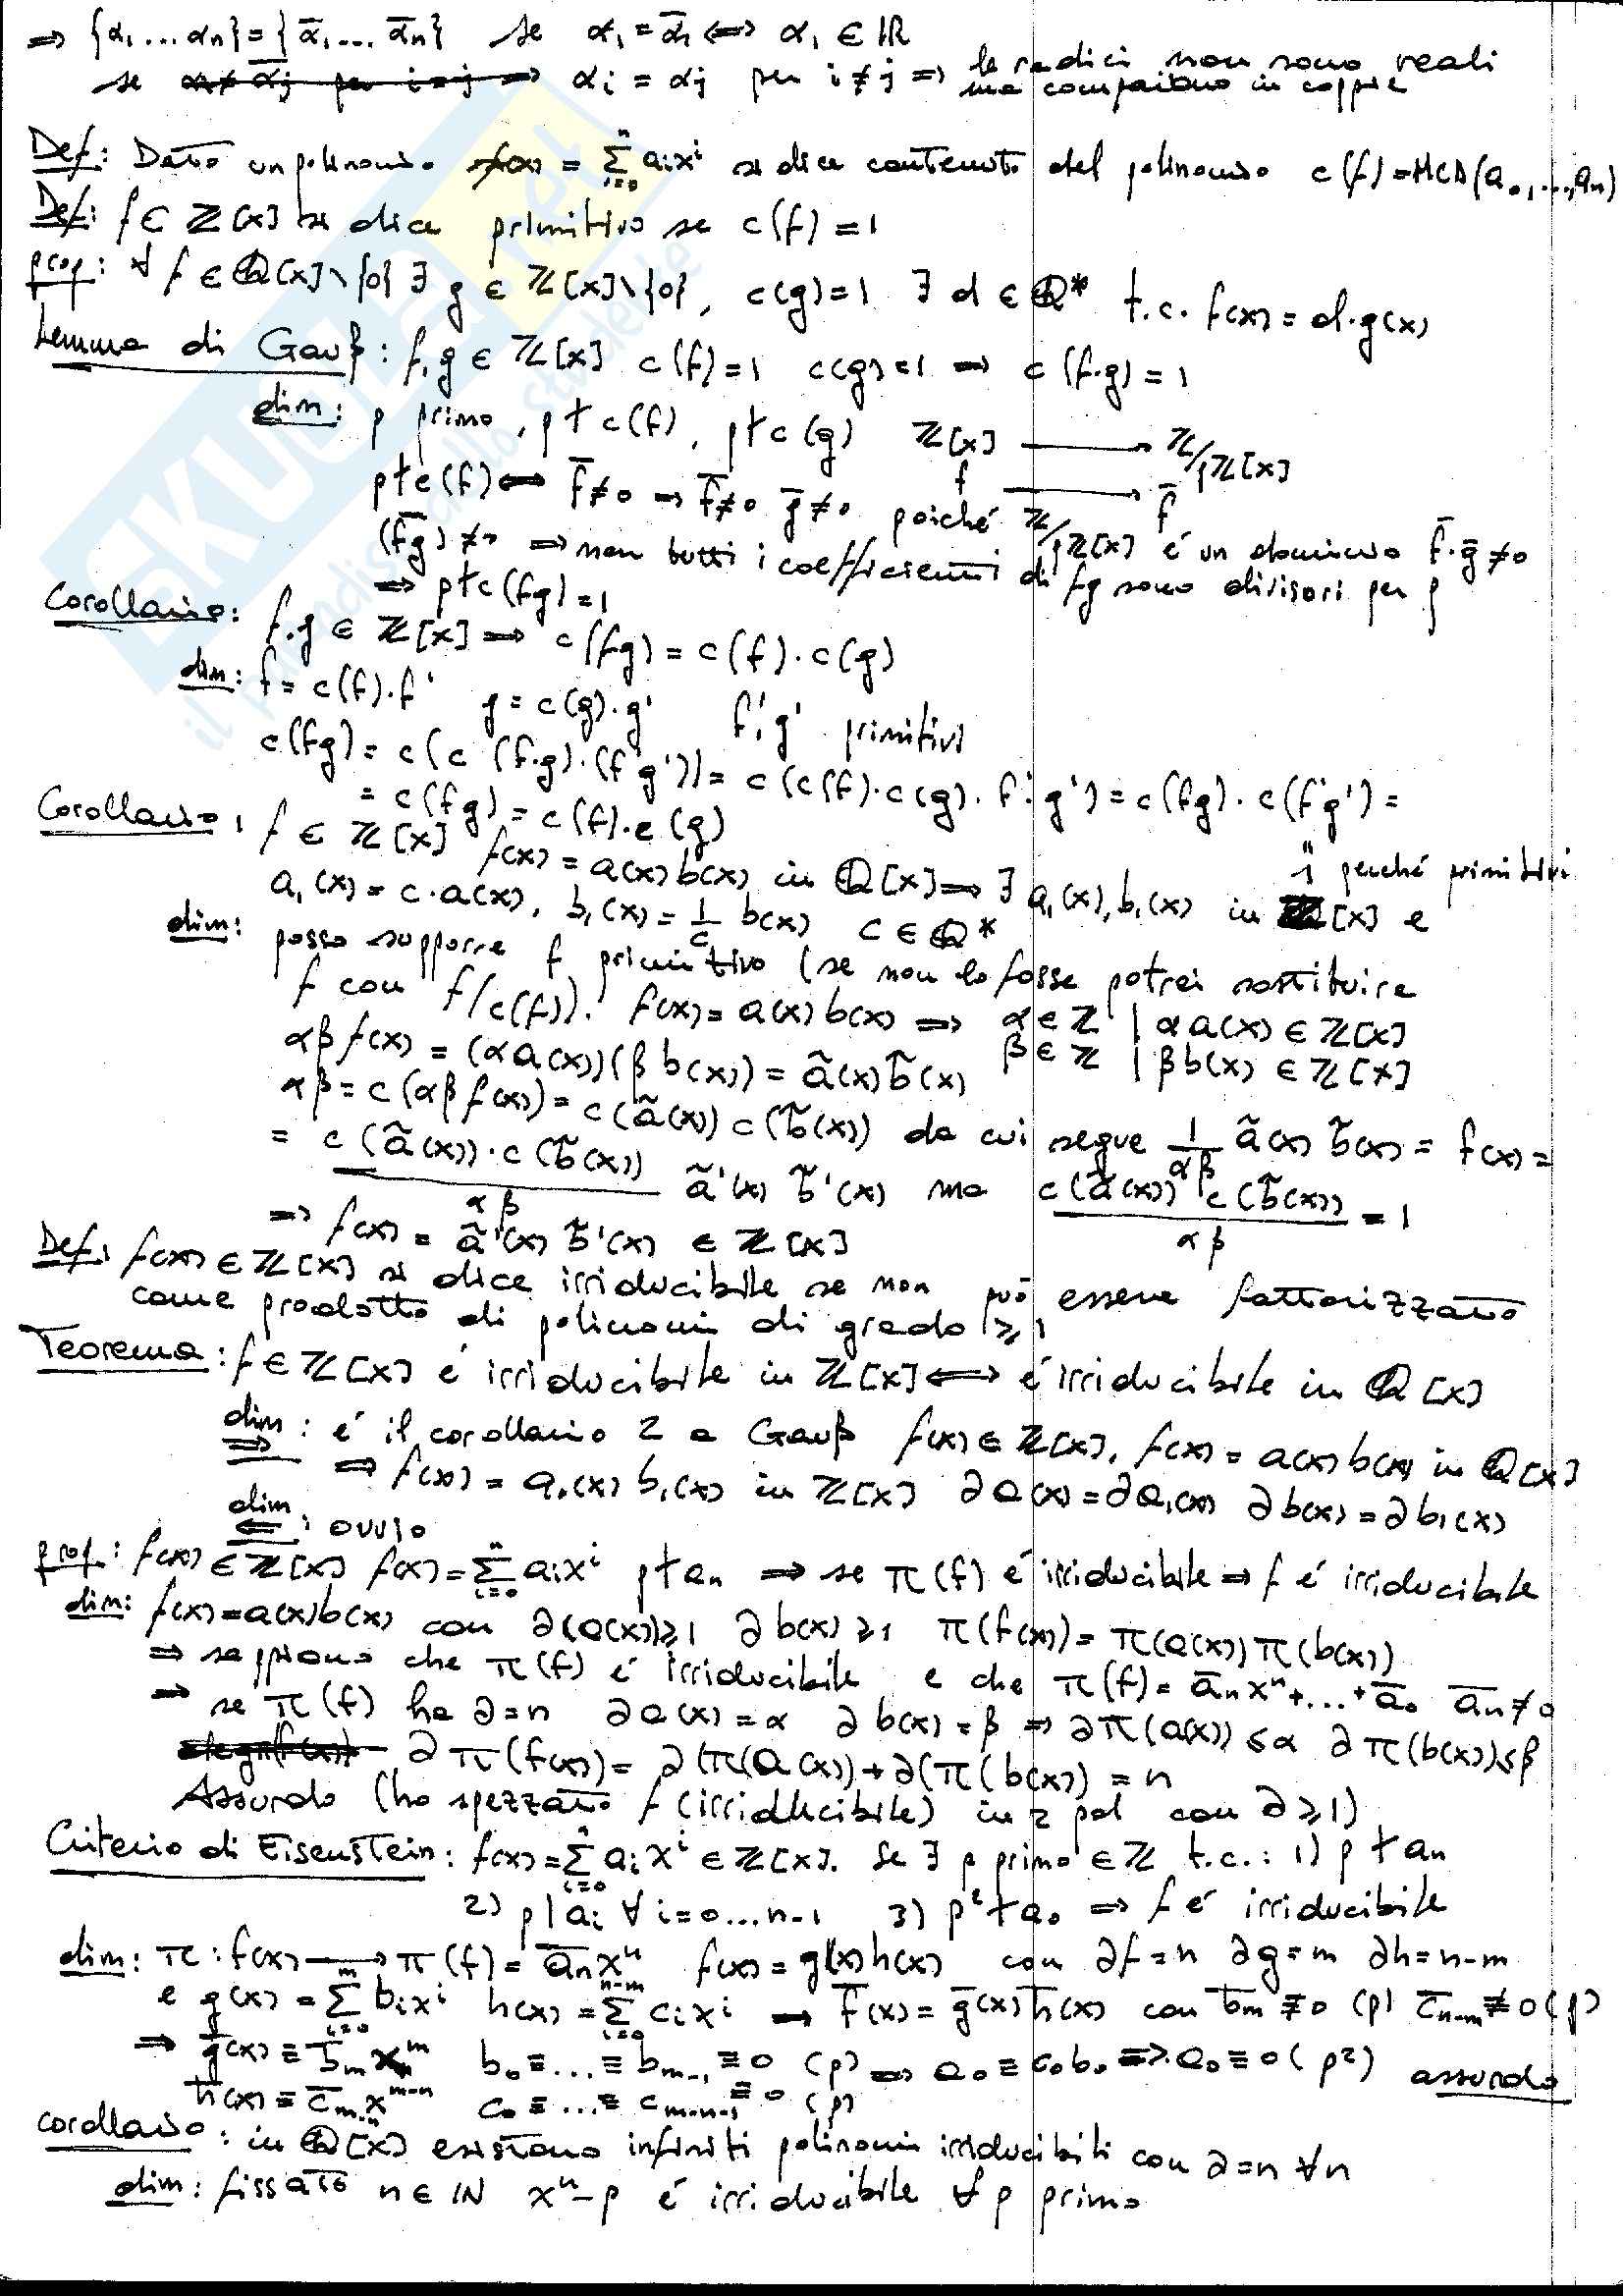 ⇒ {α₁...αn} = {ᾱ₁... ᾱn} se α₁ = ᾱ₁ ⇔ α₁ ∈ ℝ
se αi = αj per i ≠ j ⇒ le radici non sono reali
ma compaiono in coppie
Def: Dato un polinomio f(x) = Σ_{i=0}^{n} aᵢxⁱ si dice contenuto del polinomio c(f) = MCD(a₀,...,an)
Def: f ∈ ℤ[x] si dice primitivo se c(f) = 1
prop: ∀ f ∈ ℚ[x]\{0} ∃ g ∈ ℤ[x]\{0}, c(g)=1 ∃ d ∈ ℚ* t.c. f(x) = d·g(x)
Lemma di Gauß: f,g ∈ ℤ[x] c(f)=1 c(g)=1 ⇒ c(f·g)=1
dim: p primo, p∤c(f), p∤c(g) ℤ[x] → ℤ/pℤ[x]
p∤c(f) ⇔ f̄≠0 ⇒ f̄≠0 ḡ≠0 poiché ℤ/pℤ[x] é un dominio f̄·ḡ≠0
f → f̄
(f̄ḡ)≠0 ⇒ non tutti i coefficienti di fg sono divisori per p
⇒ p∤c(fg)=1
Corollario: f.g ∈ ℤ[x] ⇒ c(fg) = c(f)·c(g)
dim: f = c(f)·f' g = c(g)·g' f',g' primitivi
c(fg) = c(c(f·g)·(f'g')) = c(c(f)·c(g)·f'·g') = c(fg)·c(f'g') =
= c(fg) = c(f)·c(g)
1 perché primitivi
Corollario: f ∈ ℤ[x] f(x) = a(x)b(x) in ℚ[x] ⇒ ∃ a₁(x), b₁(x) in ℤ[x] e
a₁(x) = c·a(x), b₁(x) = 1/c b(x) c ∈ ℚ*
dim: posso supporre f primitivo (se non lo fosse potrei sostituire
f con f/c(f)). f(x) = a(x)b(x) ⇒ α∈ℤ | αa(x) ∈ ℤ[x]
β∈ℤ | βb(x) ∈ ℤ[x]
αβf(x) = (αa(x))(βb(x)) = ã(x)b̃(x)
αβ = c(αβf(x)) = c(ã(x))c(b̃(x)) da cui segue 1/αβ ã(x) b̃(x) = f(x) =
= c(ã(x))·c(b̃(x))/αβ ã'(x) b̃'(x) ma c(ã(x)) c(b̃(x))/αβ = 1
⇒ f(x) = ã'(x) b̃'(x) ∈ ℤ[x]
Def: f(x) ∈ ℤ[x] si dice irriducibile se non può essere fattorizzato
come prodotto di polinomi di grado ≥1
Teorema: f∈ℤ[x] é irriducibile in ℤ[x] ⇔ é irriducibile in ℚ[x]
dim ⇒: é il corollario 2 a Gauß f(x)∈ℤ[x], f(x) = a(x)b(x) in ℚ[x]
⇒ f(x) = a₁(x) b₁(x) in ℤ[x] ∂a(x) = ∂a₁(x) ∂b(x) = ∂b₁(x)
dim ⇐: ovvio
prop: f(x) ∈ ℤ[x] f(x) = Σ_{i=0}^{n} aᵢxⁱ p∤an ⇒ se π(f) é irriducibile ⇒ f é irriducibile
dim: f(x)=a(x)b(x) con ∂(a(x))≥1 ∂b(x)≥1 π(f(x)) = π(a(x))π(b(x))
⇒ sappiamo che π(f) é irriducibile e che π(f) = ānxⁿ+...+ā₀ ān≠0
⇒ se π(f) ha ∂=n ∂a(x)=α ∂b(x)=β ⇒ ∂π(a(x))≤α ∂π(b(x))≤β
∂π(f(x)) = ∂(π(a(x))+∂(π(b(x)) = n
Assurdo (ho spezzato f (irriducibile) in 2 pol con ∂≥1)
Criterio di Eisenstein: f(x) = Σ_{i=0}^{n} aᵢxⁱ ∈ ℤ[x]. Se ∃ p primo ∈ ℤ t.c.: 1) p∤an
2) p|aᵢ ∀i=0...n-1 3) p²∤a₀ ⇒ f é irriducibile
dim: π: f(x) → π(f) = ānxⁿ f(x) = g(x)h(x) con ∂f=n ∂g=m ∂h=n-m
e g(x) = Σ_{i=0}^{m} bᵢxⁱ h(x) = Σ_{i=0}^{n-m} cᵢxⁱ ⇒ f̄(x) = ḡ(x)h̄(x) con b̄m≢0 (p) c̄n-m≢0 (p)
⇒ ḡ(x) ≡ b̄m xᵐ b₀≡...≡bm-1≡0 (p) ⇒ a₀≡c₀b₀ ⇒ a₀≡0 (p²) assurdo
h̄(x) ≡ c̄m-n xᵐ⁻ⁿ c₀≡...≡cm-n-1≡0 (p)
Corollario: in ℚ[x] esistono infiniti polinomi irriducibili con ∂=n ∀n
dim: fissato n∈ℕ xⁿ-p é irriducibile ∀ p primo